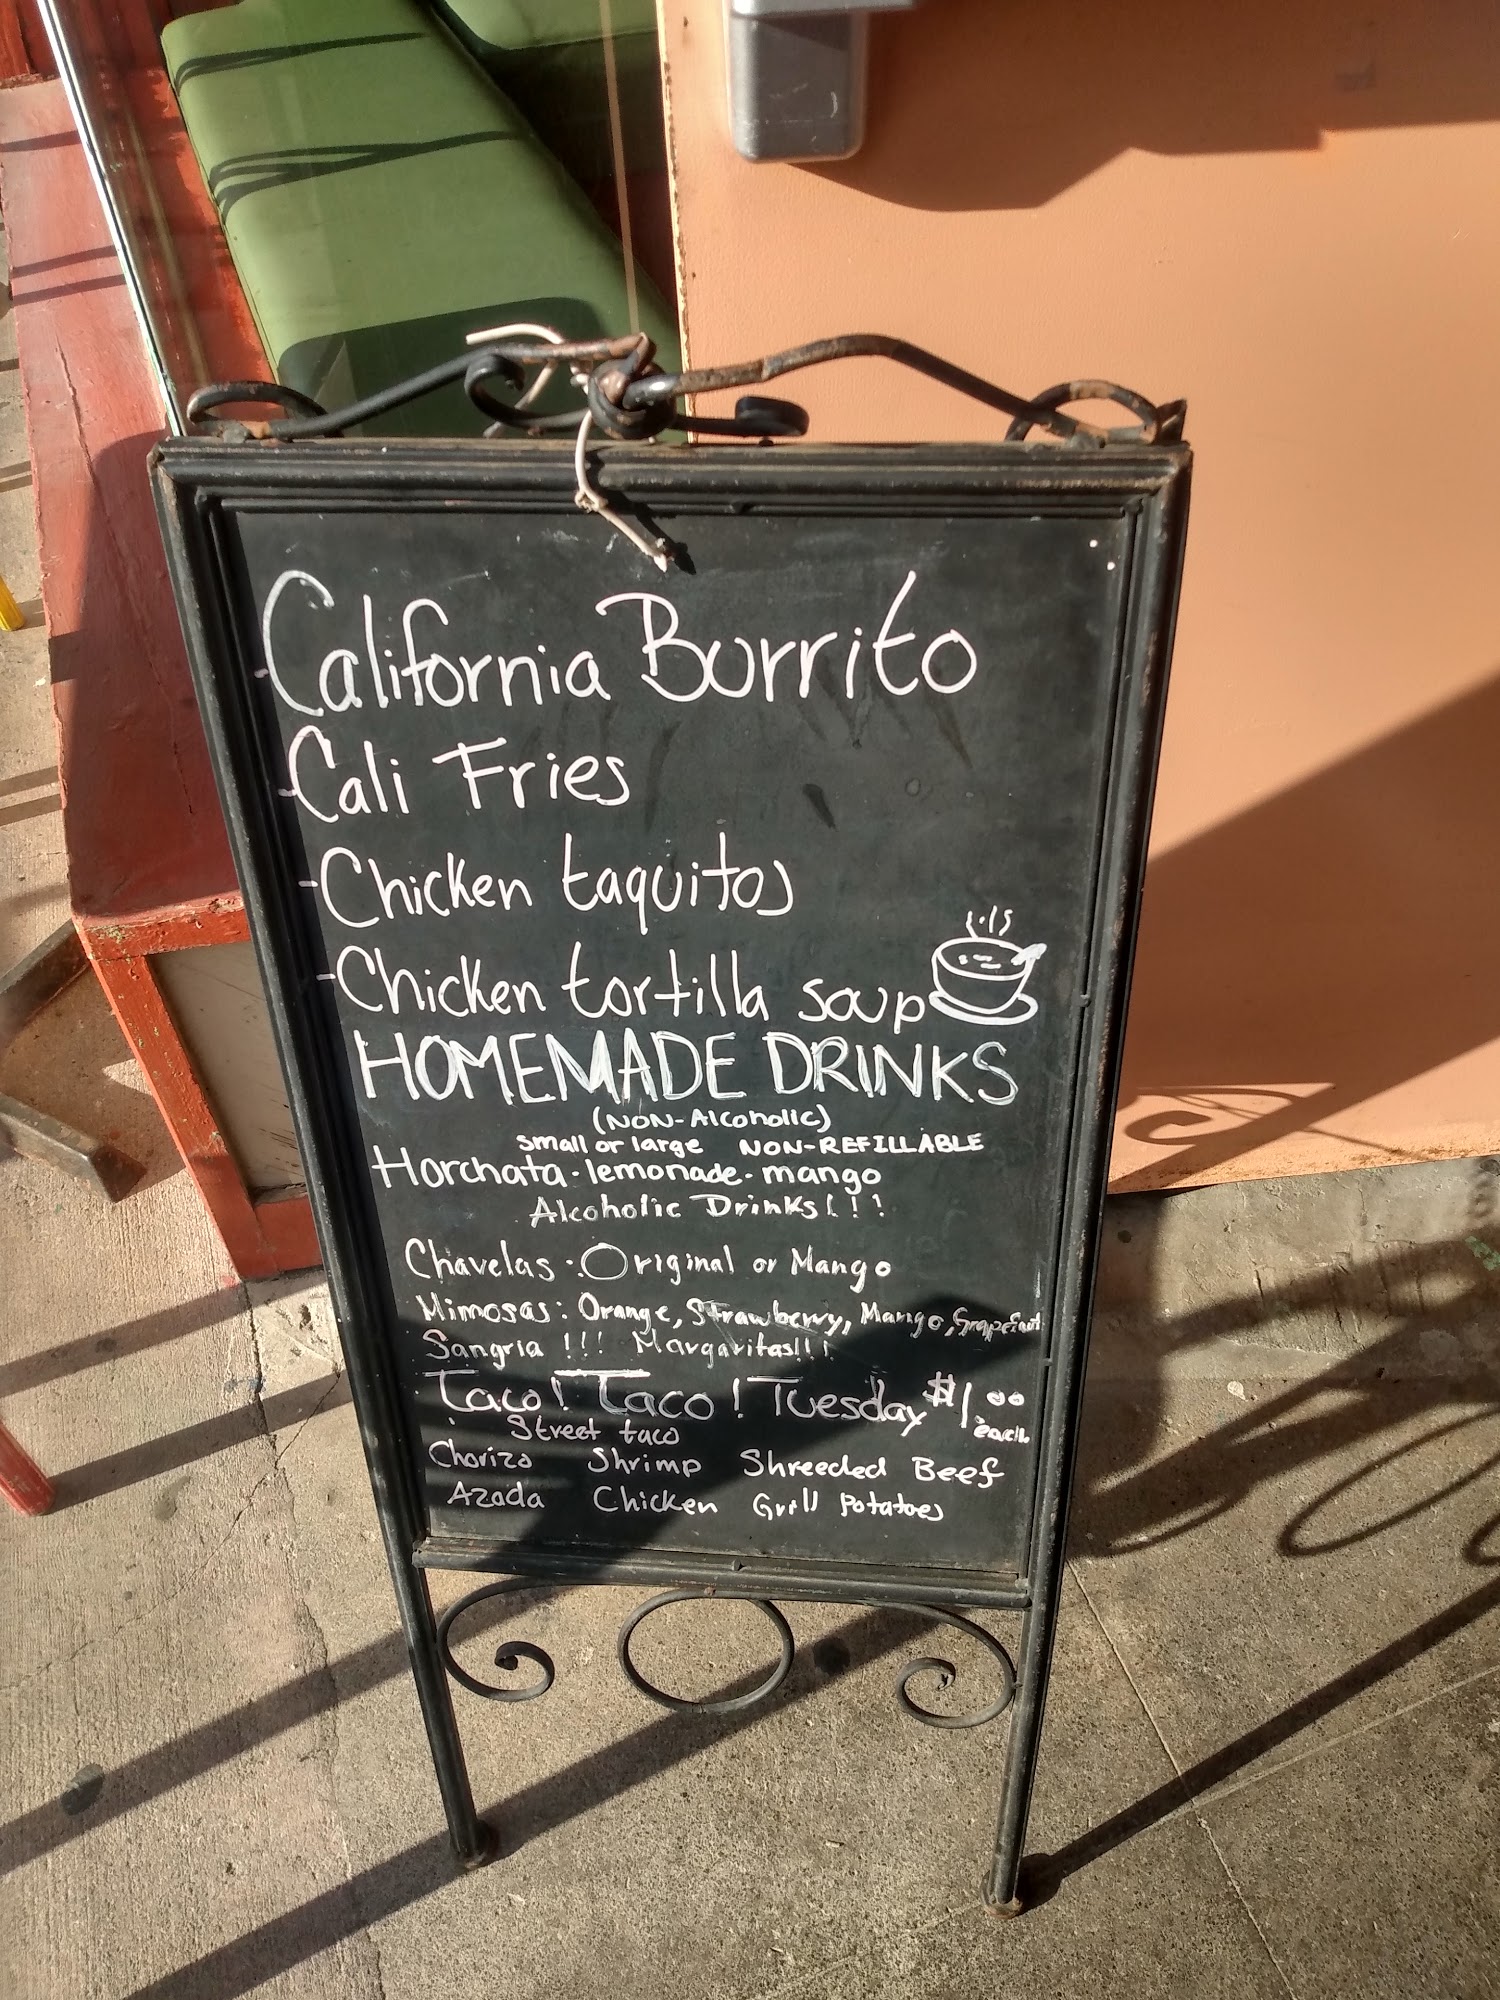 -California Burrito
-Cali Fries
-Chicken taquitos
-Chicken tortilla soup
HOMEMADE DRINKS
(NON-Alcoholic)
small or large NON-REFILLABLE
Horchata·lemonade·mango
Alcoholic Drinks!!!
Chavelas: Original or Mango
Mimosas: Orange, Strawberry, Mango, Grapefruit
Sangria !!! Margaritas!!!
Taco! Taco! Tuesday $1.00 each
Street taco
Chorizo Shrimp Shreeded Beef
Azada Chicken Grill Potatoes